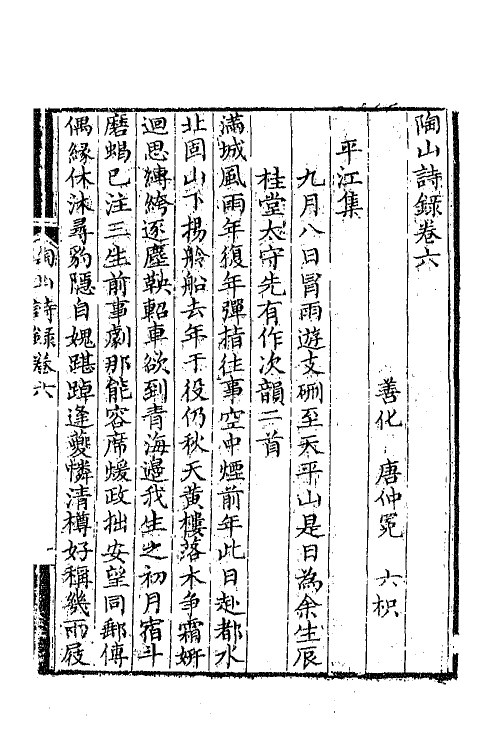 陶山詩錄卷六
善化　唐仲冕　六枳
平江集
九月八日冒雨遊支硎至天平山是日為余生辰
桂堂太守先有作次韻二首
滿城風雨年復年彈指往事空中煙前年此日赴都水
北固山下揚舲船去年于役仍秋天黃樓落木爭霜妍
迴思縳絝逐塵鞅軺車欲到青海邊我生之初月宿斗
磨蝎已注三生前事劇那能容席煖政拙安望同郵傳
偶緣休沐尋豹隱自媿踸踔逢夔憐清樽好稱幾兩屐
陶山詩錄卷六